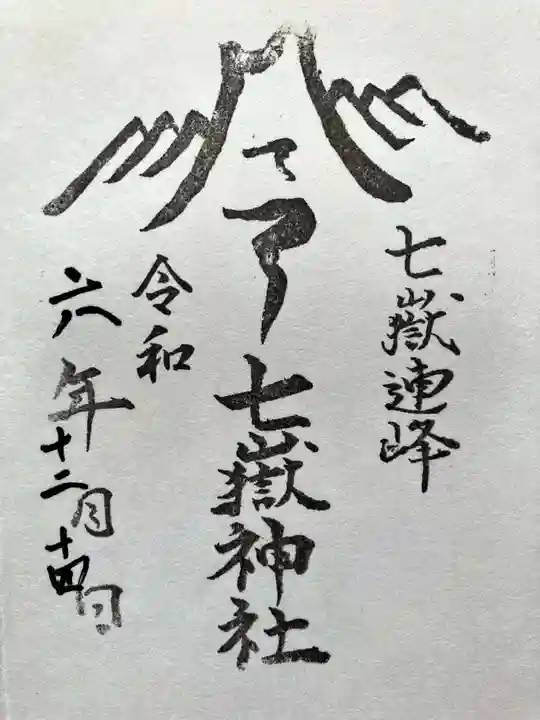 七嶽連峰
七嶽神社
令和
六年十二月十四日